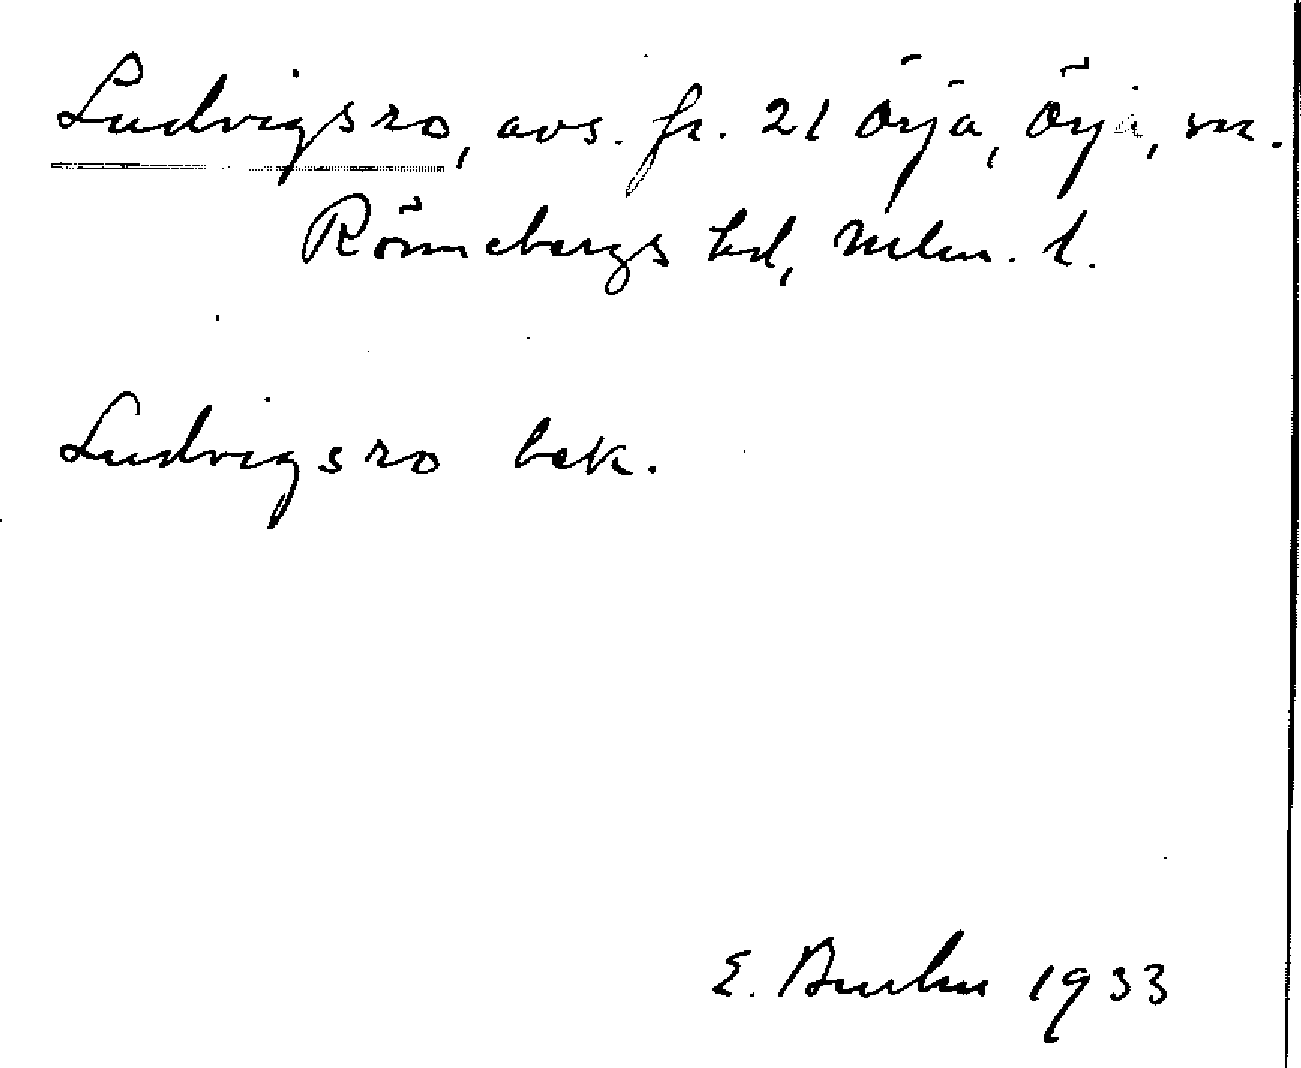 Ludvigsro, avs. fr. 21 Örja, Örja, sn.
Rönnebergs hd, Mlm. l.
Ludvigsro bek.
E. 1933